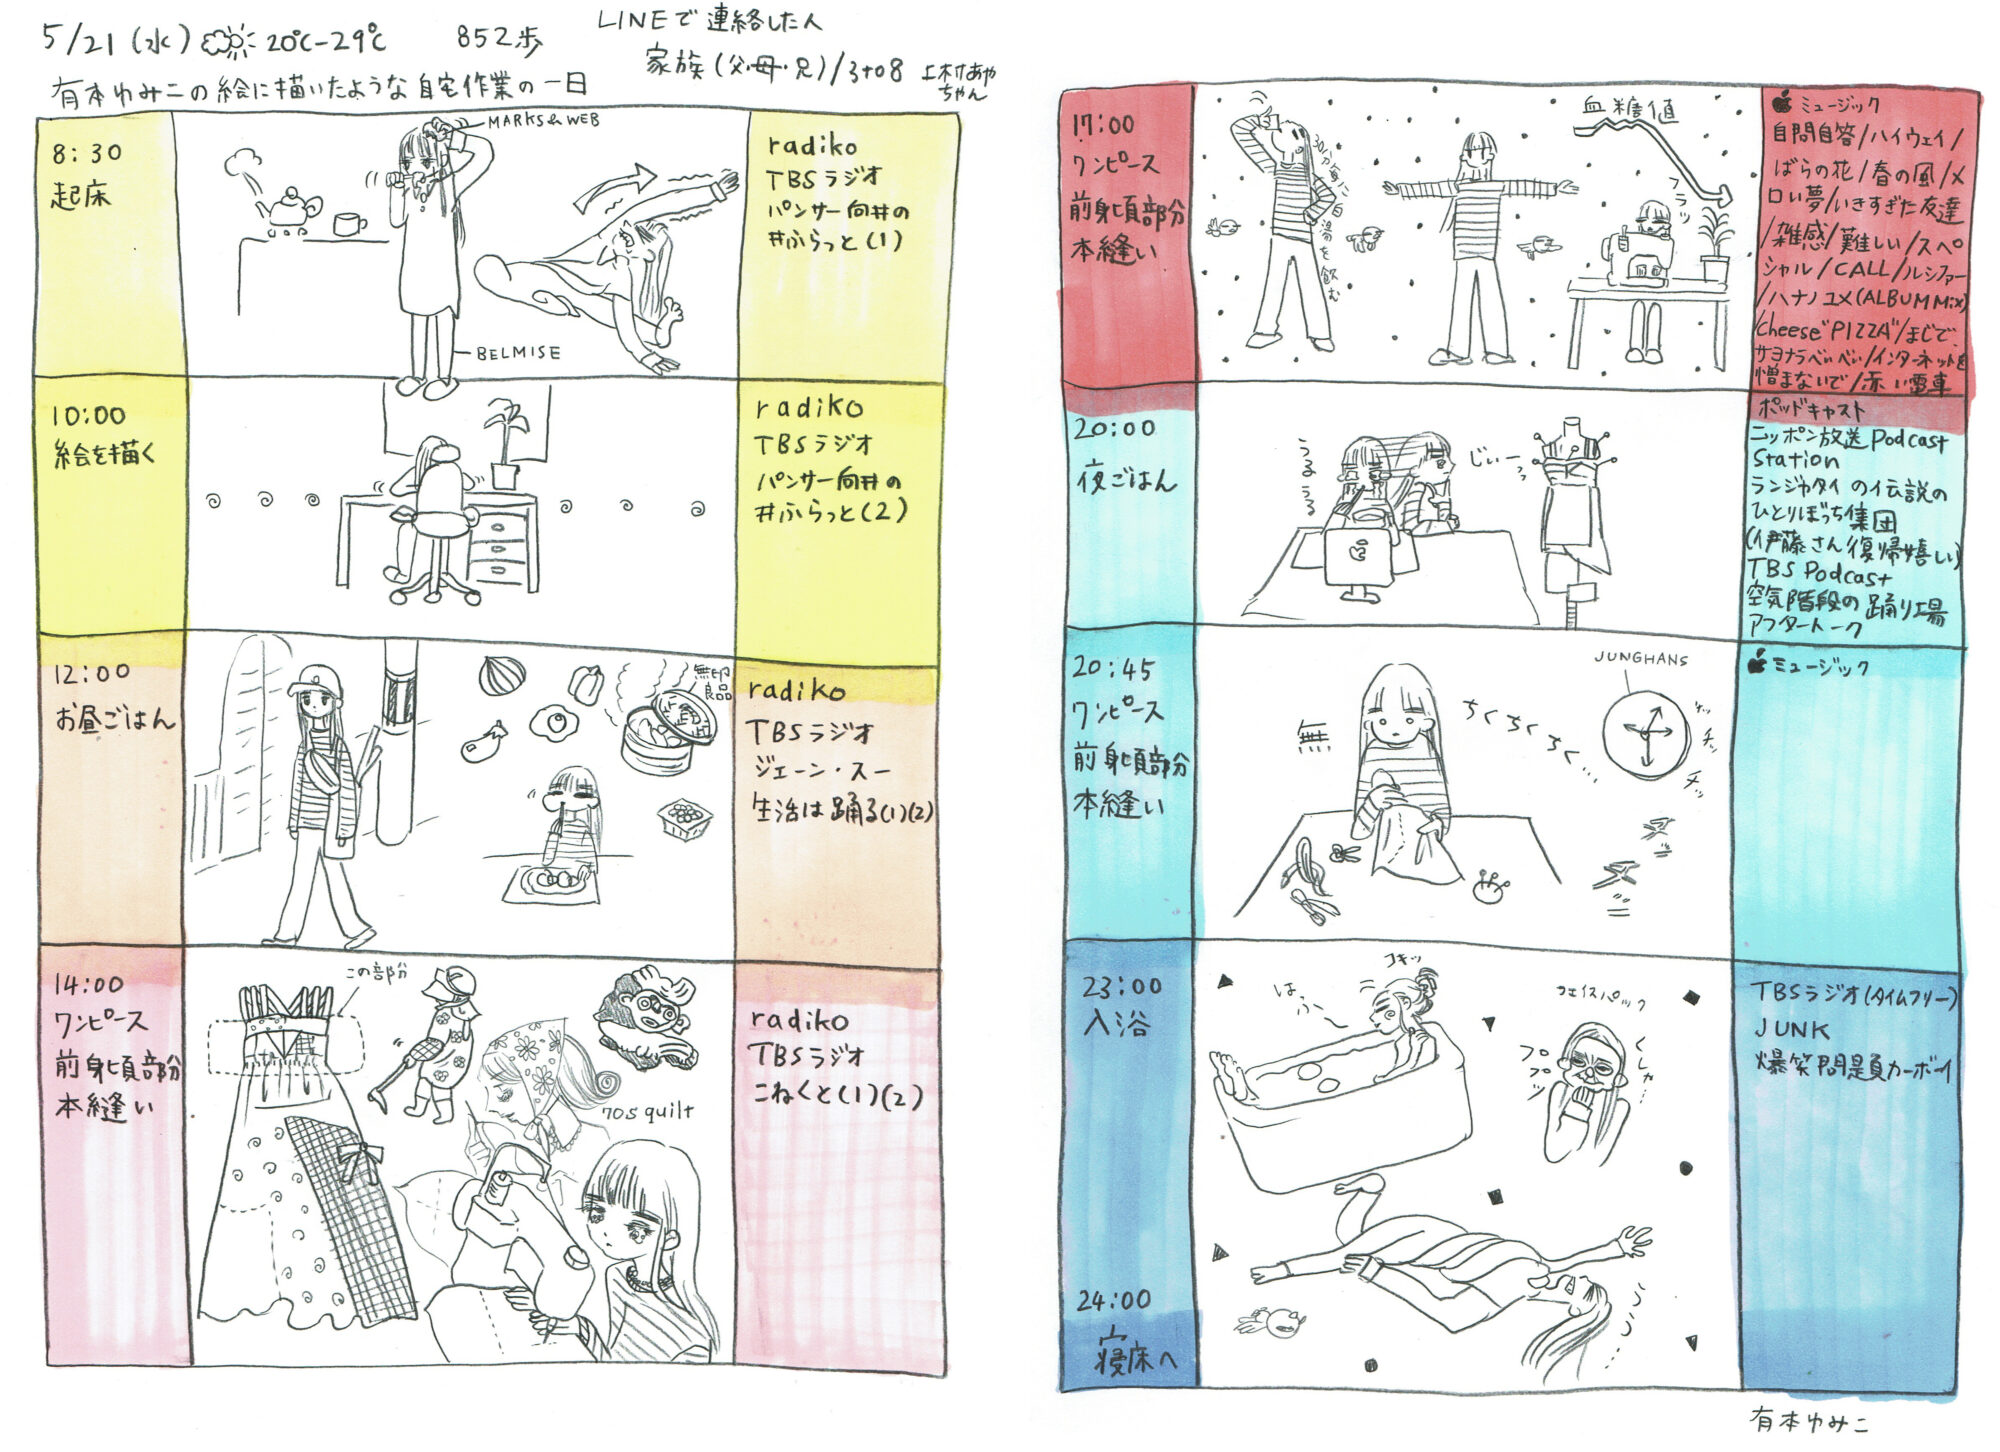 5/21(水) 20℃-29℃ 852歩
LINEで連絡した人
家族(父・母・兄)/3to8 上村あや
ちゃん
有本ゆみこの絵に描いたような自宅作業の一日
8:30
起床
MARKS&WEB
BELMISE
radiko
TBSラジオ
パンサー向井の
#ふらっと(1)
10:00
絵を描く
radiko
TBSラジオ
パンサー向井の
#ふらっと(2)
12:00
お昼ごはん
無印
良品
radiko
TBSラジオ
ジェーン・スー
生活は踊る(1)(2)
14:00
ワンピース
前身頃部分
本縫い
この部分
70s quilt
radiko
TBSラジオ
こねくと(1)(2)
17:00
ワンピース
前身頃部分
本縫い
30分毎に白湯を飲む
血糖値
フラッ
ミュージック
自問自答/ハイウェイ/
ばらの花/春の風/メ
ロい夢/いきすぎた友達
/雑感/難しい/スペ
シャル/CALL/ルシファー
/ハナノユメ(ALBUM Mix)
/Cheese"PIZZA"/まじで、
サヨナラべいべい/インターネットを
憎まないで/赤い電車
20:00
夜ごはん
うるうる
じぃーっ
ポッドキャスト
ニッポン放送Podcast
Station
ランジャタイの伝説の
ひとりぼっち集団
(伊藤さん復帰嬉しい)
TBS Podcast
空気階段の踊り場
アフタートーク
20:45
ワンピース
前身頃部分
本縫い
無
ちくちくちく…
JUNGHANS
チッ
チッ
チッ
ミュージック
23:00
入浴
はふー
コキッ
フェイスパック
ププッ
くしゃ…
24:00
寝床へ
ううう…
TBSラジオ(タイムフリー)
JUNK
爆笑問題カーボーイ
有本ゆみこ